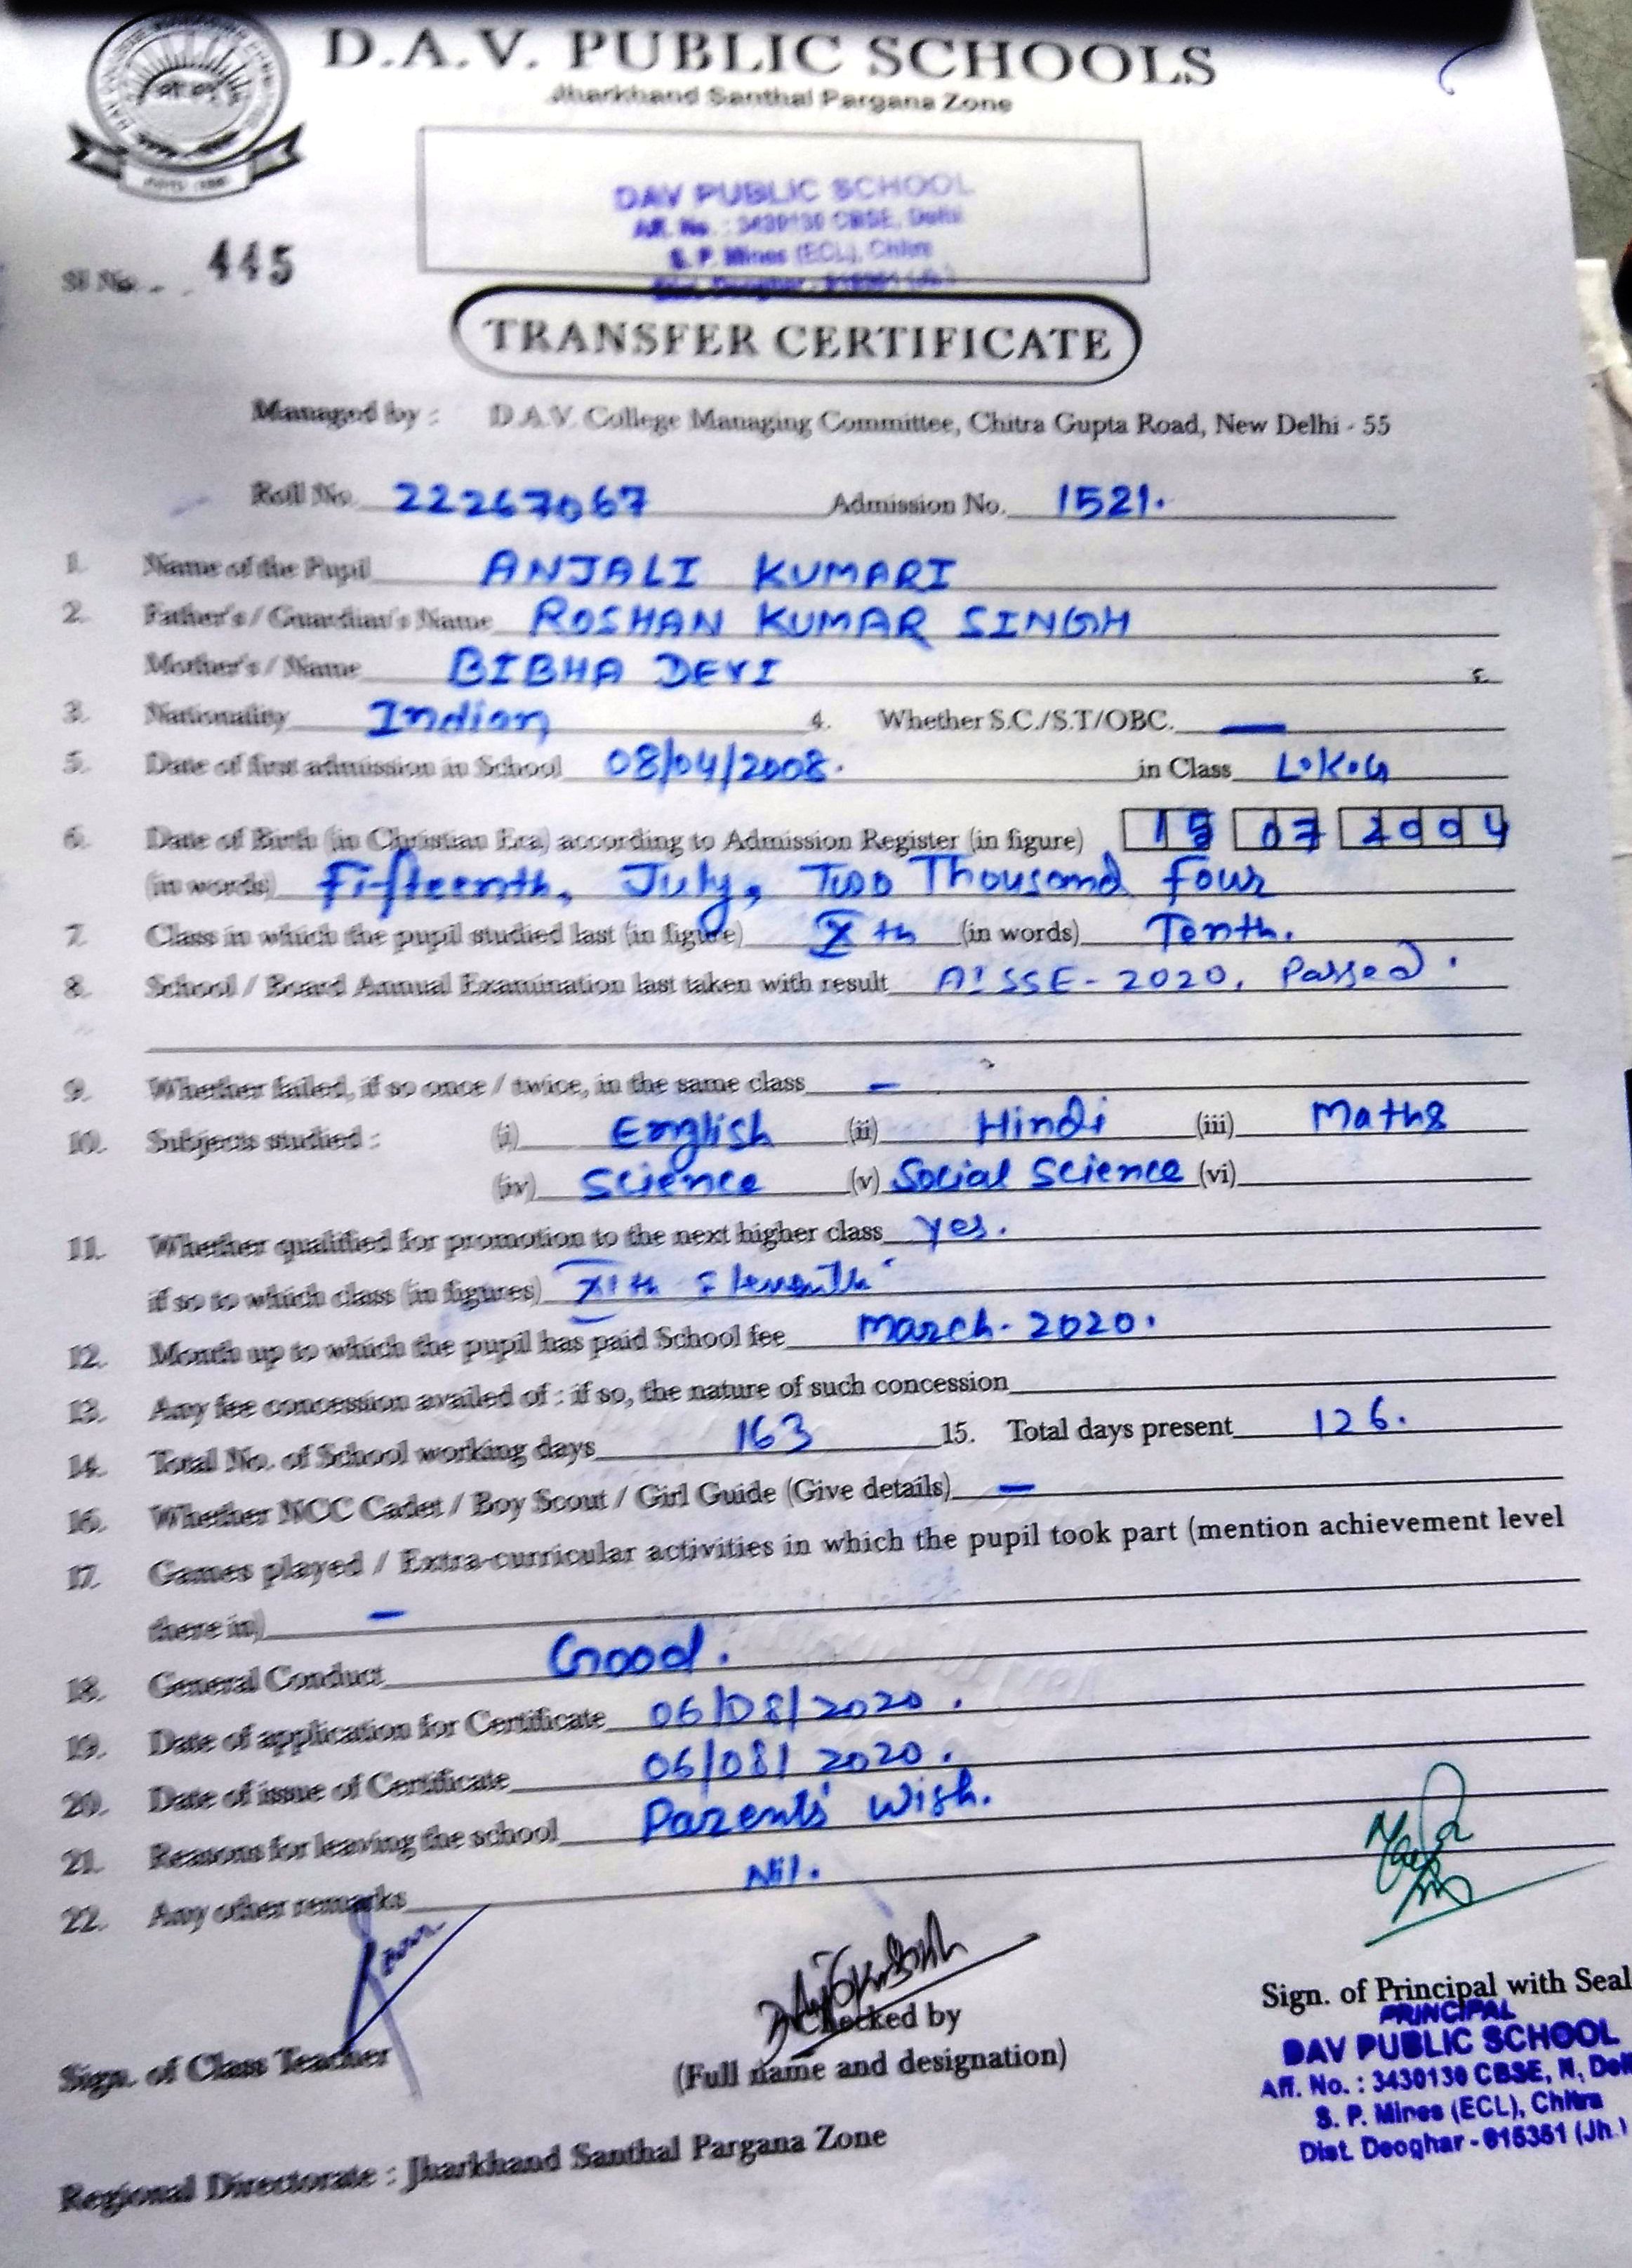 D.A.V. PUBLIC SCHOOLS
Jharkhand Santhal Pargana Zone
DAV PUBLIC SCHOOL
Aff. No. : 3430130 CBSE, Delhi
S. P. Mines (ECL), Chitra
Dist. Deoghar - 815351 (Jh.)
Sl No. 445
TRANSFER CERTIFICATE
Managed by : D.A.V. College Managing Committee, Chitra Gupta Road, New Delhi - 55
Roll No. 22267067 Admission No. 1521.
1. Name of the Pupil ANJALI KUMARI
2. Father's / Guardian's Name ROSHAN KUMAR SINGH
Mother's / Name BIBHA DEVI
3. Nationality Indian 4. Whether S.C./S.T/OBC. —
5. Date of first admission in School 08/04/2008. in Class L.K.G
6. Date of Birth (in Christian Era) according to Admission Register (in figure) 15 07 2004
(in words) Fifteenth, July, Two Thousand Four
7. Class in which the pupil studied last (in figure) Xth (in words) Tenth.
8. School / Board Annual Examination last taken with result AISSE - 2020, Passed.
9. Whether failed, if so once / twice, in the same class –
10. Subjects studied : (i) English (ii) Hindi (iii) Maths
(iv) Science (v) Social Science (vi)
11. Whether qualified for promotion to the next higher class yes.
if so to which class (in figures) XIth Eleventh
12. Month up to which the pupil has paid School fee March - 2020.
13. Any fee concession availed of : if so, the nature of such concession
14. Total No. of School working days 163 15. Total days present 126.
16. Whether NCC Cadet / Boy Scout / Girl Guide (Give details) –
17. Games played / Extra-curricular activities in which the pupil took part (mention achievement level
there in) –
18. General Conduct Good.
19. Date of application for Certificate 06/08/2020.
20. Date of issue of Certificate 06/08/2020.
21. Reasons for leaving the school Parents' Wish.
22. Any other remarks Nil.
Sign. of Class Teacher
Checked by
(Full name and designation)
Sign. of Principal with Seal
PRINCIPAL
DAV PUBLIC SCHOOL
Aff. No. : 3430130 CBSE, N, Del
S. P. Mines (ECL), Chitra
Dist. Deoghar - 815351 (Jh.)
Regional Directorate : Jharkhand Santhal Pargana Zone